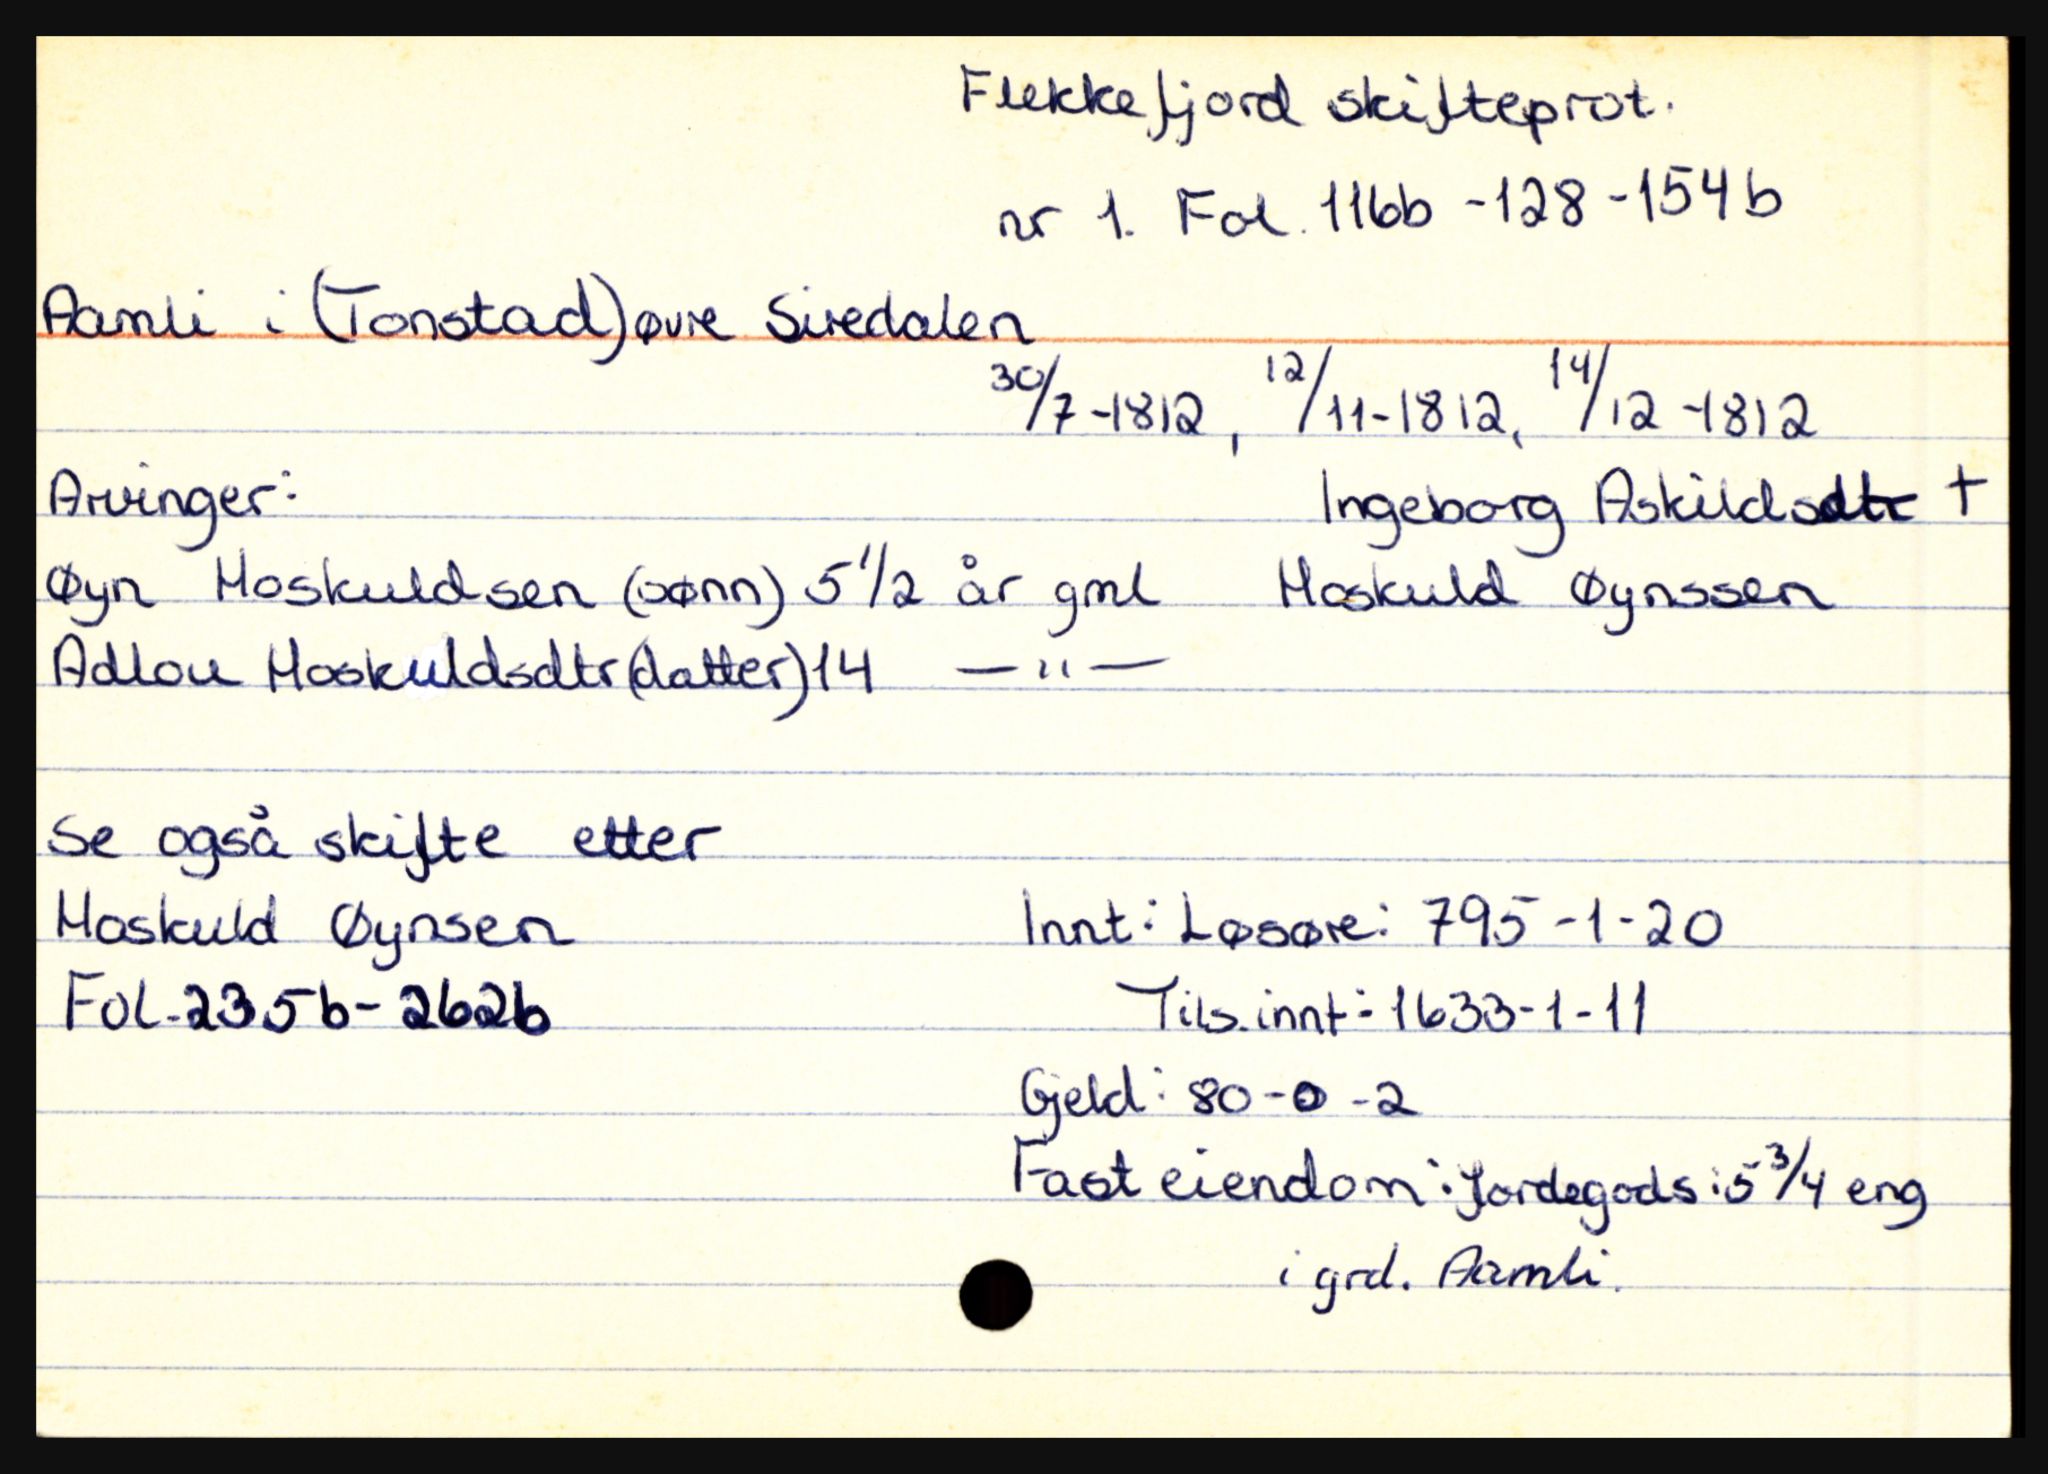 Flekkefjord skifteprot.
nr 1. Fol. 116b - 128 - 154b
Aamli i (Tonstad) øvre Siredalen
30/7 - 1812, 12/11 - 1812, 14/12 - 1812
Arvinger: Ingeborg Askildsdtr †
Øyn Hoskuldsen (sønn) 5 1/2 år gml Hoskuld Øynssen
Adlou Hoskuldsdtr (datter) 14 — " —
Se også skifte etter
Hoskuld Øynsen Innt: Løsøre: 795 - 1 - 20
Fol. 235b - 262b Tils. innt: 1633 - 1 - 11
Gjeld: 80 - 0 - 2
Fast eiendom: Jordegods: 5 3/4 eng
i grd. Aamli.